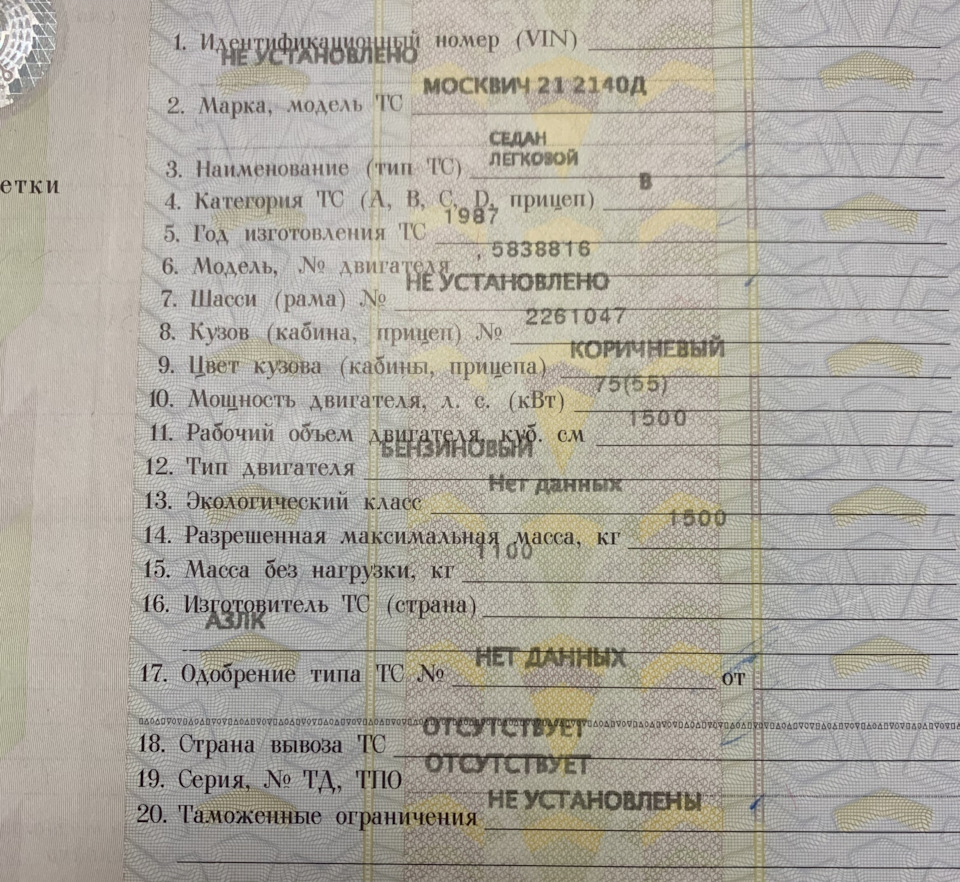 етки
1. Идентификационный номер (VIN)
НЕ УСТАНОВЛЕНО
2. Марка, модель ТС МОСКВИЧ 21 2140Д
СЕДАН
3. Наименование (тип ТС) ЛЕГКОВОЙ
4. Категория ТС (A, B, C, D, прицеп) В
5. Год изготовления ТС 1987
6. Модель, № двигателя , 5838816
7. Шасси (рама) № НЕ УСТАНОВЛЕНО
8. Кузов (кабина, прицеп) № 2261047
9. Цвет кузова (кабины, прицепа) КОРИЧНЕВЫЙ
10. Мощность двигателя, л. с. (кВт) 75(55)
11. Рабочий объем двигателя, куб. см 1500
12. Тип двигателя БЕНЗИНОВЫЙ
13. Экологический класс Нет данных
14. Разрешенная максимальная масса, кг 1500
15. Масса без нагрузки, кг 1100
16. Изготовитель ТС (страна)
АЗЛК
17. Одобрение типа ТС № НЕТ ДАННЫХ от
18. Страна вывоза ТС ОТСУТСТВУЕТ
19. Серия, № ТД, ТПО ОТСУТСТВУЕТ
20. Таможенные ограничения НЕ УСТАНОВЛЕНЫ